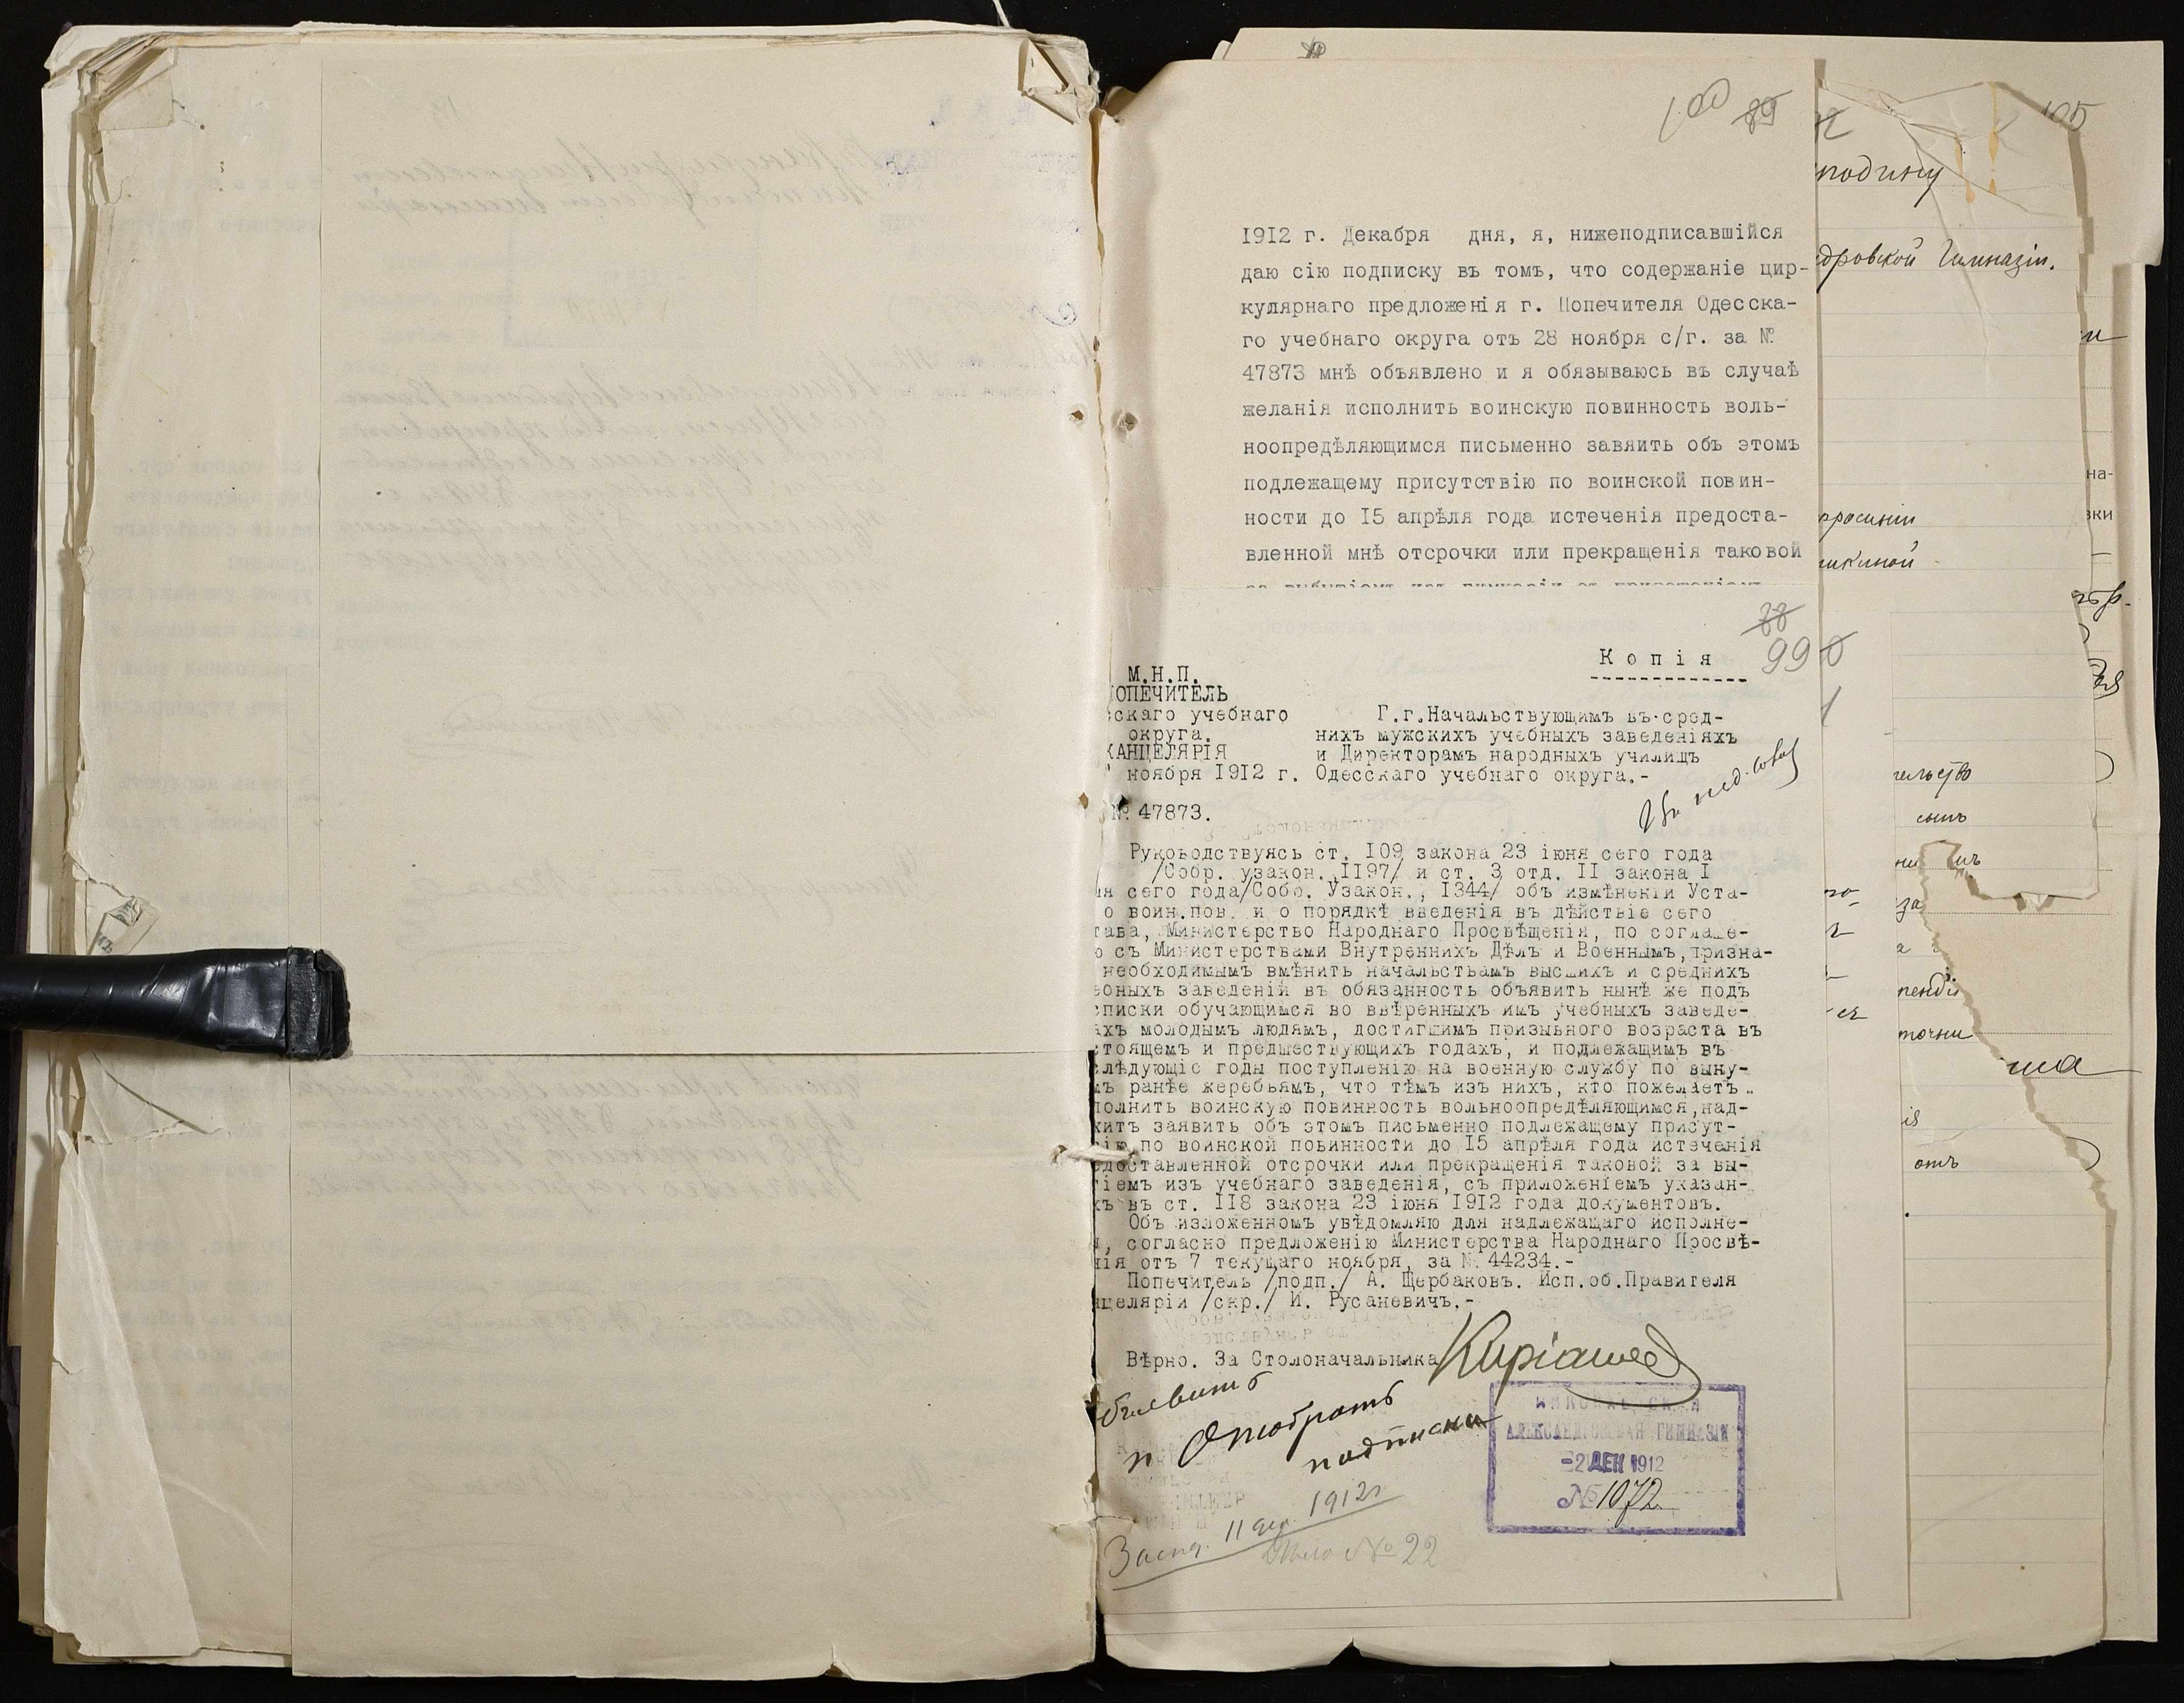 100 89
1912 г. Декабря дня, я, нижеподписавшійся
даю сію подписку въ томъ, что содержаніе цир-
кулярнаго предложенія г. Попечителя Одесска-
го учебнаго округа отъ 28 ноября с/г. за №
47873 мнѣ объявлено и я обязываюсь въ случаѣ
желанія исполнить воинскую повинность воль-
ноопредѣляющимся письменно завяить объ этомъ
подлежащему присутствію по воинской повин-
ности до 15 апрѣля года истеченія предоста-
вленной мнѣ отсрочки или прекращенія таковой
88
99
Копія
М.Н.П.
ПОПЕЧИТЕЛЬ
скаго учебнаго
округа.
КАНЦЕЛЯРІЯ
ноября 1912 г.
№ 47873.
Г.г.Начальствующимъ въ сред-
нихъ мужскихъ учебныхъ заведеніяхъ
и Директорамъ народныхъ училищъ
Одесскаго учебнаго округа.-
Въ пед. совѣ
Руководствуясь ст. 109 закона 23 іюня сего года
/Собр. узакон. 1197/ и ст. 3 отд. II закона I
ія сего года/Собо. Узакон., 1344/ объ измѣненіи Уста-
о воин.пов. и о порядкѣ введенія въ дѣйствіе сего
тава, Министерство Народнаго Просвѣщенія, по соглаше-
ю съ Министерствами Внутреннихъ Дѣлъ и Военнымъ,призна-
необходимымъ вмѣнить начальствамъ высшихъ и среднихъ
ебныхъ заведеній въ обязанность объявить нынѣ же подъ
списки обучающимся во ввѣренныхъ имъ учебныхъ заведе-
яхъ молодымъ людямъ, достигшимъ призывного возраста въ
стоящемъ и предшествующихъ годахъ, и подлежащимъ въ
слѣдующіе годы поступленію на военную службу по выну-
мъ ранѣе жеребьямъ, что тѣмъ изъ нихъ, кто пожелаетъ
полнить воинскую повинность вольноопредѣляющимся,над-
житъ заявить объ этомъ письменно подлежащему присут-
ію по воинской повинности до 15 апрѣля года истеченія
едоставленной отсрочки или прекращенія таковой за вы-
тіемъ изъ учебнаго заведенія, съ приложеніемъ указан-
хъ въ ст. 118 закона 23 іюня 1912 года документовъ.
Объ изложенномъ увѣдомляю для надлежащаго исполне-
я, согласно предложенію Министерства Народнаго Просвѣ-
нія отъ 7 текущаго ноября, за № 44234.-
Попечитель /подп./ А. Щербаковъ. Исп.об.Правителя
нцеляріи /скр./ И. Русаневичъ.-
Вѣрно. За Столоначальника
бъявить
и Отобрать
подписки
АЛЕКСАНДРОВСКАЯ ГИМНАЗІЯ
-2 ДЕК 1912
№ 1072
11 дек. 1912г
Дѣло № 22
105
подину
дровской Гимназіи.
на-
ки
тельство
сынъ
за
пенді
точни
отъ